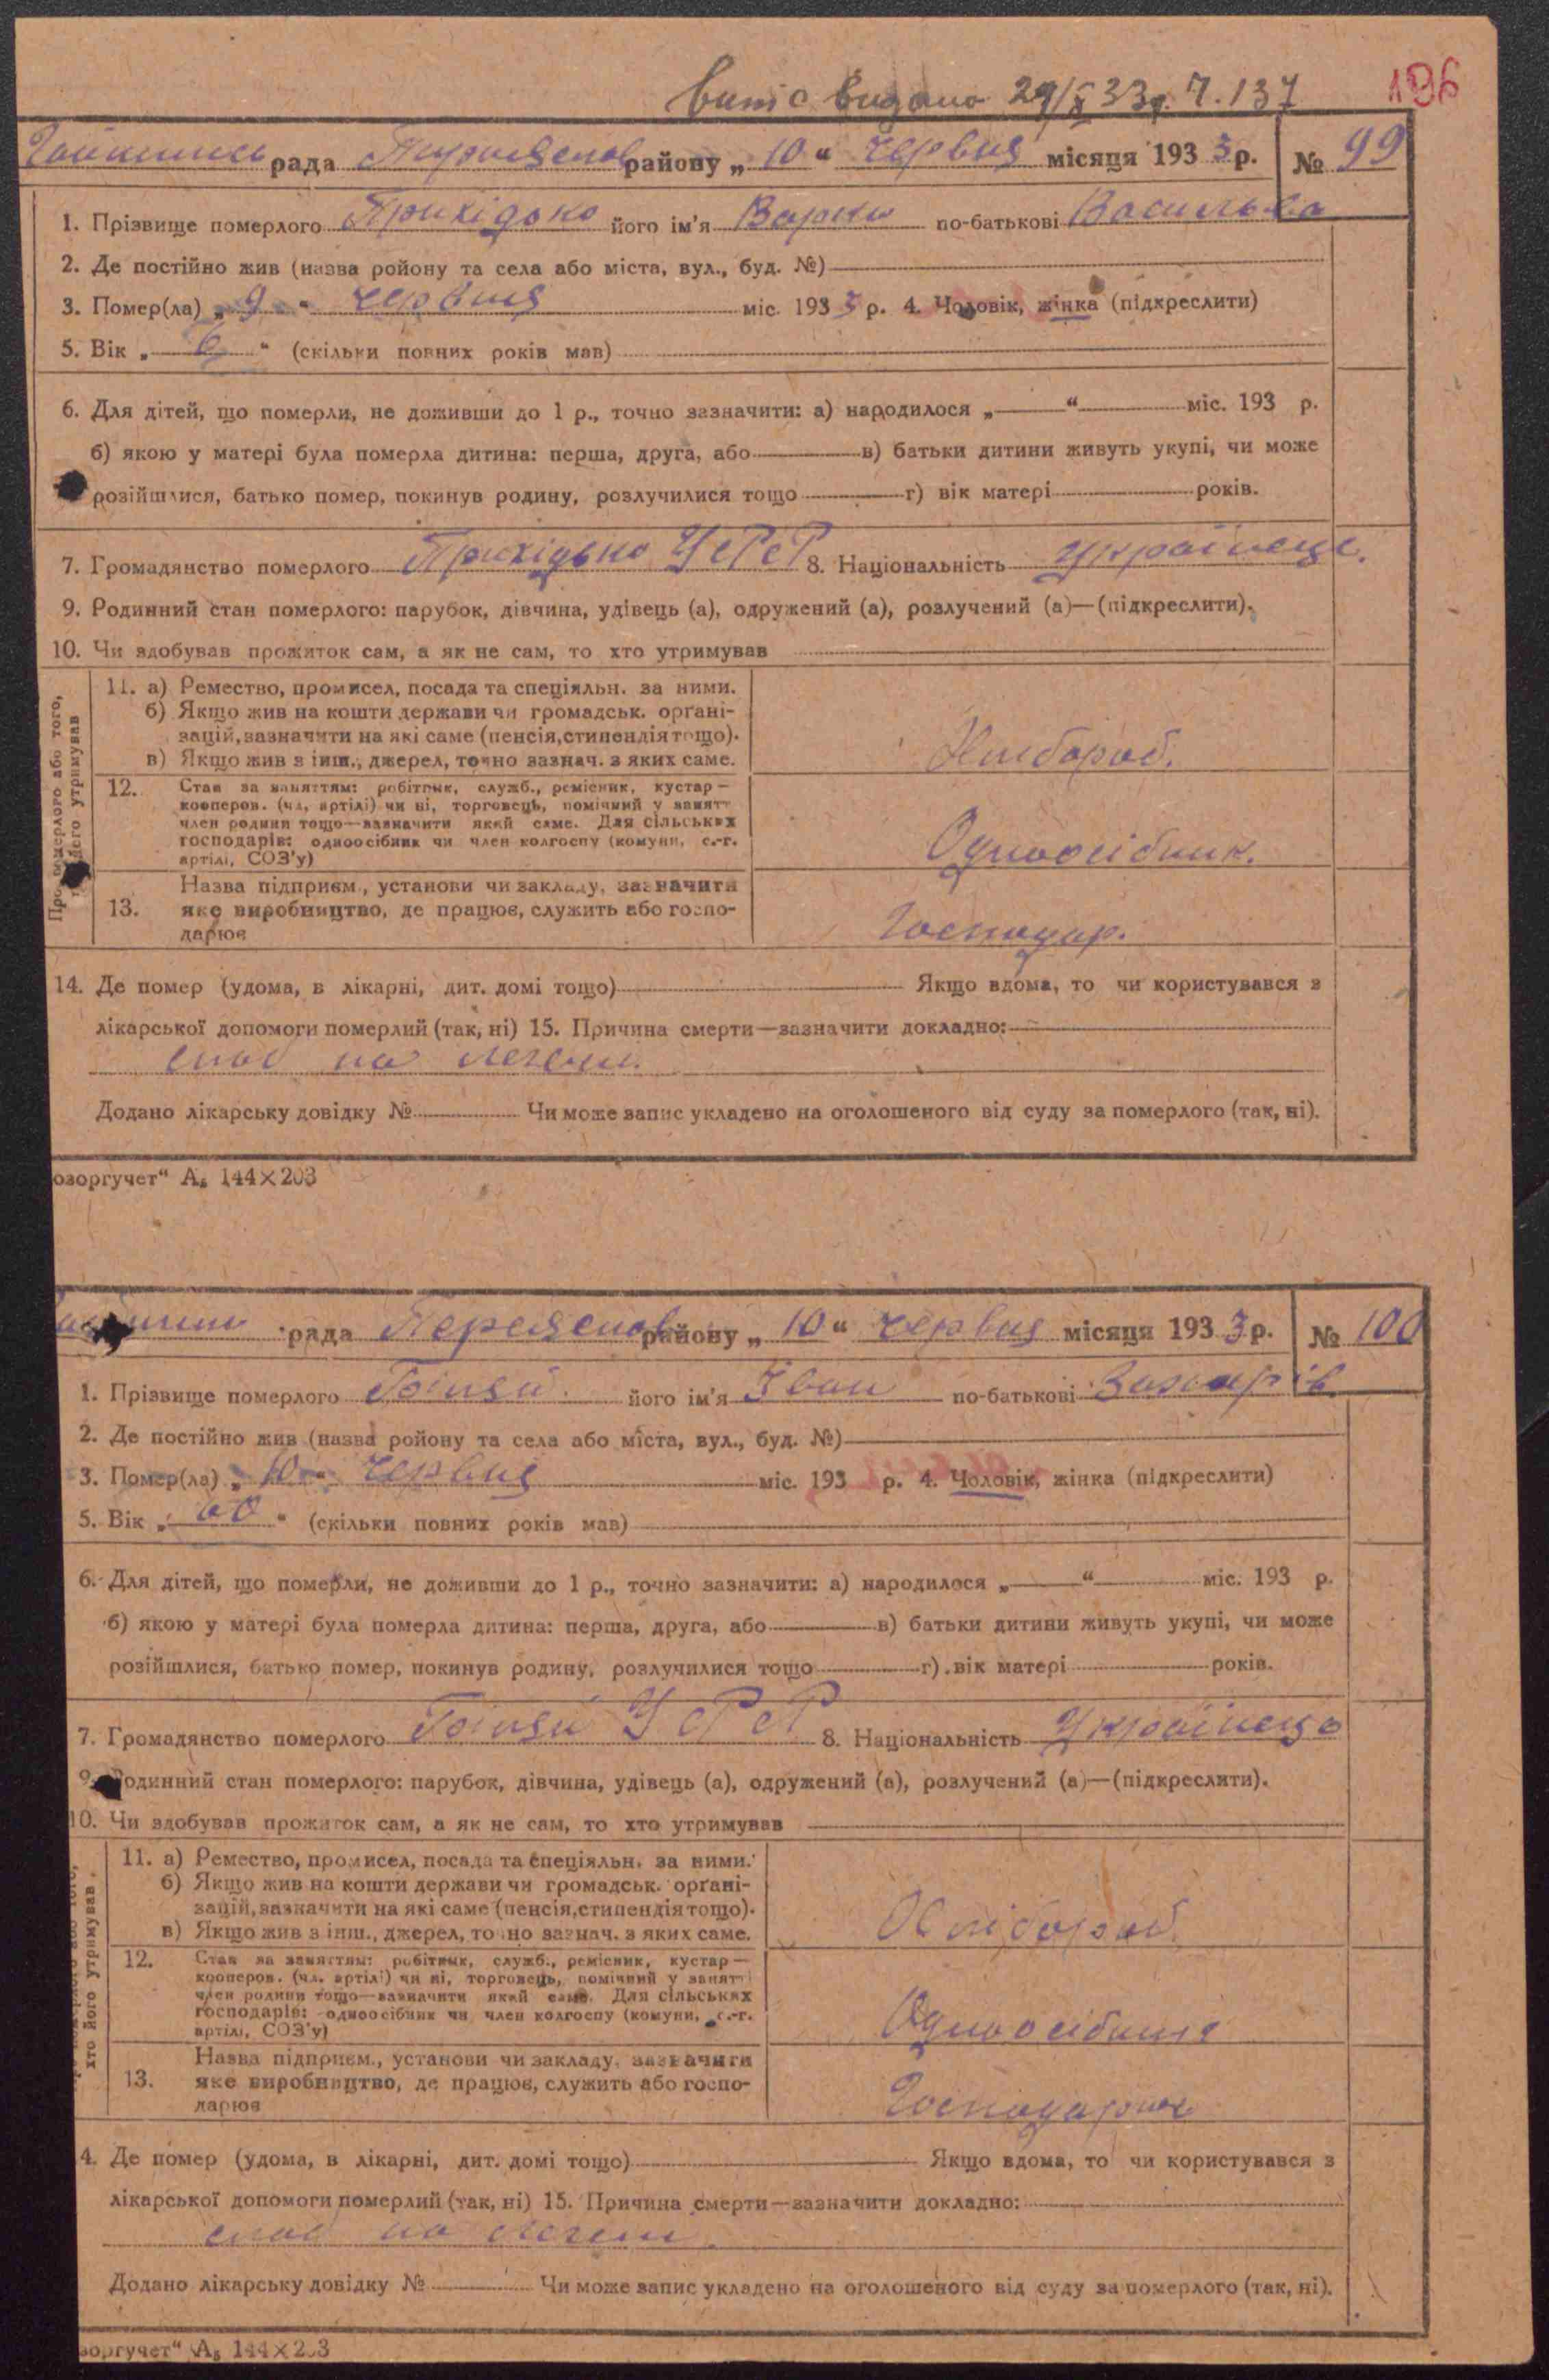 витяг видано 29/X 33 р. Ч. 137 196
рада району „ 10 “ червня місяця 193 3 р. № 99
1. Прізвище померлого Прихідько його ім'я Варка по-батькові Васильева
2. Де постійно жив (назва ройону та села або міста, вул., буд. №)
3. Помер(ла) „ 9 “ червня міс. 193 3 р. 4. Чоловік, жінка (підкреслити)
5. Вік „ 6 “ (скільки повних років мав)
6. Для дітей, що померли, не доживши до 1 р., точно зазначити: а) народилося „ “ міс. 193 р.
б) якою у матері була померла дитина: перша, друга, або в) батьки дитини живуть укупі, чи може
розійшлися, батько помер, покинув родину, розлучилися тощо г) вік матері років.
7. Громадянство померлого Прихідько УСРР 8. Національність українець.
9. Родинний стан померлого: парубок, дівчина, удівець (а), одружений (а), розлучений (а)—(підкреслити).
10. Чи здобував прожиток сам, а як не сам, то хто утримував
Про померлого або того, хто його утримував
11. а) Ремество, промисел, посада та спеціяльн. за ними.
б) Якщо жив на кошти держави чи громадськ. орґані-
зацій, зазначити на які саме (пенсія, стипендія тощо).
в) Якщо жив з інш., джерел, точно зазнач. з яких саме.
Хлібороб.
12. Стан за заняттям: робітник, служб., ремісник, кустар—
кооперов. (чл. артілі) чи ні, торговець, помічний у занятті
член родини тощо—зазначити який саме. Для сільських
господарів: одноосібник чи член колгоспу (комуни, с.-г.
артілі, СОЗ'у)
Одноосібник.
Назва підприєм., установи чи закладу, зазначити
13. яке виробництво, де працює, служить або госпо-
дарює
Господар.
14. Де помер (удома, в лікарні, дит. домі тощо) Якщо вдома, то чи користувався з
лікарської допомоги померлий (так, ні) 15. Причина смерти—зазначити докладно:
на
Додано лікарську довідку № Чи може запис укладено на оголошеного від суду за померлого (так, ні).
озоргучет“ А₅ 144×203
рада району „ 10 “ червня місяця 193 3 р. № 100
1. Прізвище померлого його ім'я Іван по-батькові Захарів
2. Де постійно жив (назва ройону та села або міста, вул., буд. №)
3. Помер(ла) „ 10 “ червня міс. 193 р. 4. Чоловік, жінка (підкреслити)
5. Вік „ 60 “ (скільки повних років мав)
6. Для дітей, що померли, не доживши до 1 р., точно зазначити: а) народилося „ “ міс. 193 р.
б) якою у матері була померла дитина: перша, друга, або в) батьки дитини живуть укупі, чи може
розійшлися, батько помер, покинув родину, розлучилися тощо г) вік матері років.
7. Громадянство померлого УСРР 8. Національність Українець
9. Родинний стан померлого: парубок, дівчина, удівець (а), одружений (а), розлучений (а)—(підкреслити).
10. Чи здобував прожиток сам, а як не сам, то хто утримував
хто його утримував
11. а) Ремество, промисел, посада та спеціяльн. за ними.
б) Якщо жив на кошти держави чи громадськ. орґані-
зацій, зазначити на які саме (пенсія, стипендія тощо).
в) Якщо жив з інш., джерел, точно зазнач. з яких саме.
Хлібороб.
12. Стан за заняттям: робітник, служб., ремісник, кустар—
кооперов. (чл. артілі) чи ні, торговець, помічний у занятті
член родини тощо—зазначити який саме. Для сільських
господарів: одноосібник чи член колгоспу (комуни, с.-г.
артілі, СОЗ'у)
Назва підприєм., установи чи закладу, зазначити
13. яке виробництво, де працює, служить або госпо-
дарює
4. Де помер (удома, в лікарні, дит. домі тощо) Якщо вдома, то чи користувався з
лікарської допомоги померлий (так, ні) 15. Причина смерти—зазначити докладно:
на
Додано лікарську довідку № Чи може запис укладено на оголошеного від суду за померлого (так, ні).
зоргучет“ А₅ 144×203